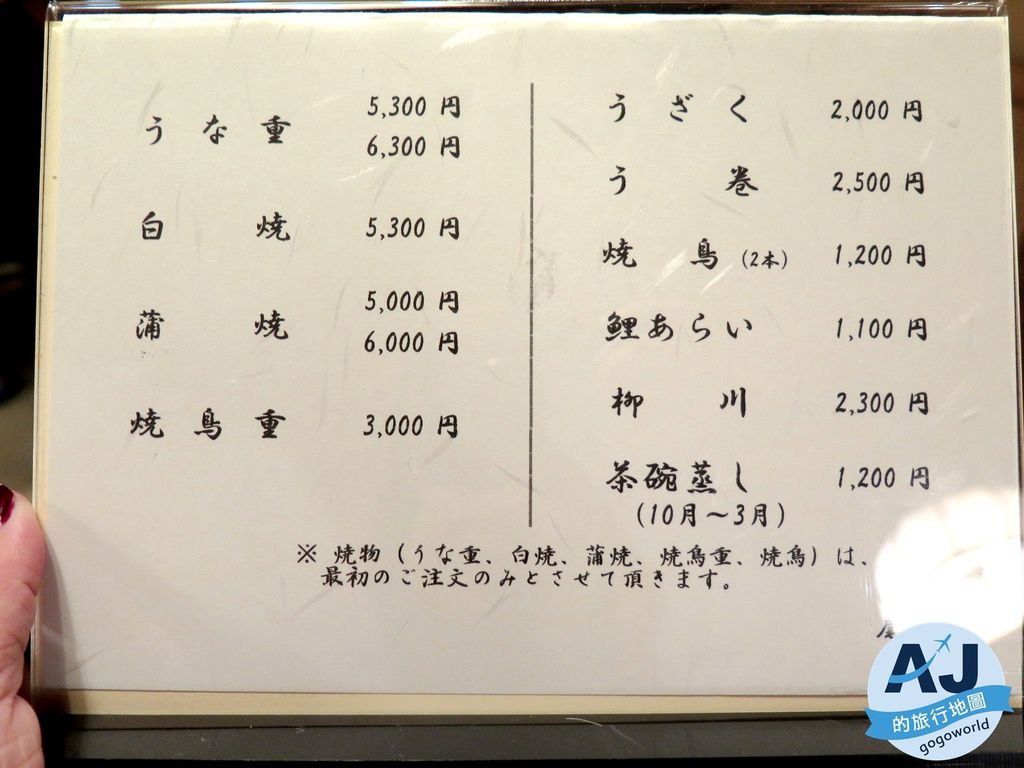 うな重 5,300 円
6,300 円
白焼 5,300 円
蒲焼 5,000 円
6,000 円
焼鳥重 3,000 円
うざく 2,000 円
う巻 2,500 円
焼鳥 (2本) 1,200 円
鯉あらい 1,100 円
柳川 2,300 円
茶碗蒸し 1,200 円
(10月～3月)
※ 焼物 (うな重、白焼、蒲焼、焼鳥重、焼鳥) は、
最初のご注文のみとさせて頂きます。
AJ
的旅行地圖
gogoworld